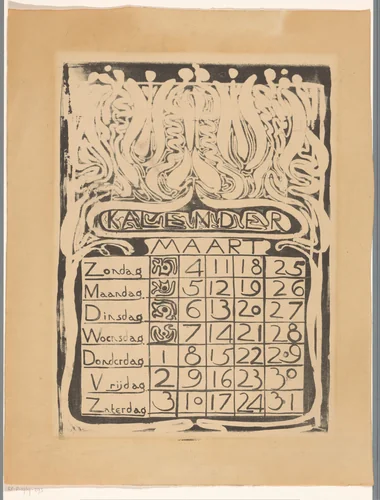 KALENDER
MAART
Zondag 4 11 18 25
Maandag 5 12 19 26
Dinsdag 6 13 20 27
Woensdag 7 14 21 28
Donderdag 1 8 15 22 29
Vrijdag 2 9 16 23 30
Zaterdag 3 10 17 24 31